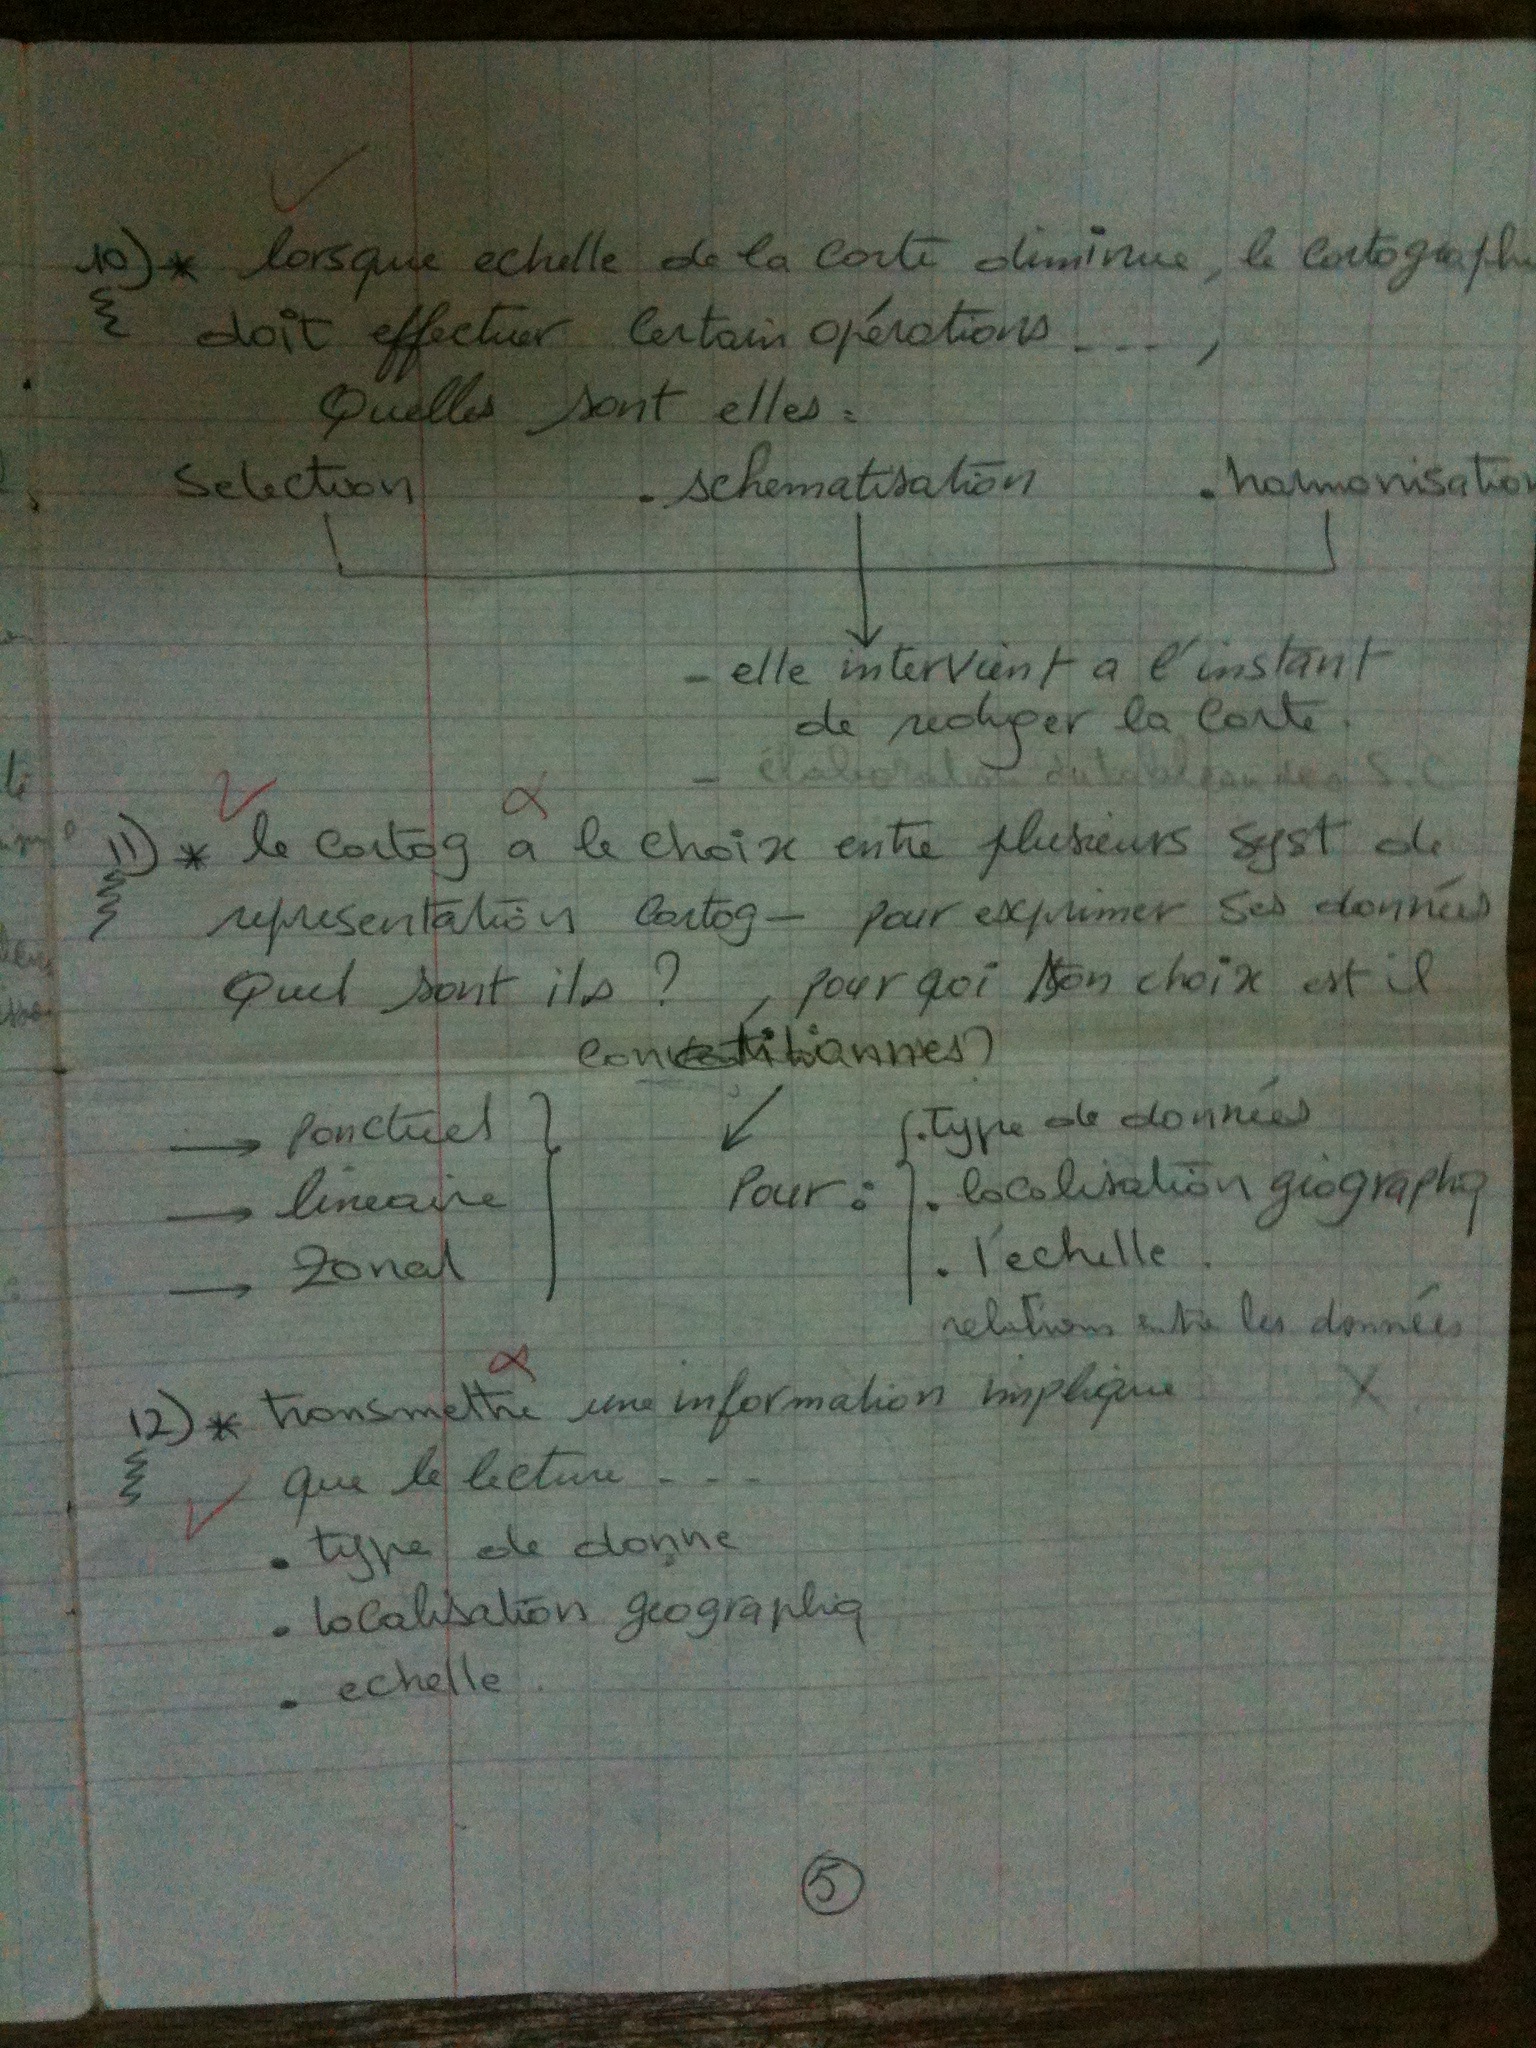 10) * lorsque echelle de la carte diminue, le cartographe
doit effectuer certain opérations - - - ,
Quelles sont elles :
Selection . schematisation . harmonisation
- elle intervient a l'instant
de rediger la carte.
- élaboration du tableau des S.C
11) * le cartog a le choix entre plusieurs syst de
representation cartog - pour exprimer ses données
Quel sont ils ? , pour qoi son choix est il
→ ponctuel
→ lineaire
→ zonal
Pour :
. type de données
. localisation géographiq
. l'echelle .
relations entre les données
12) * transmettre une information implique X
que le lecture - - -
. type de donne
. localisation geographiq
. echelle .
5